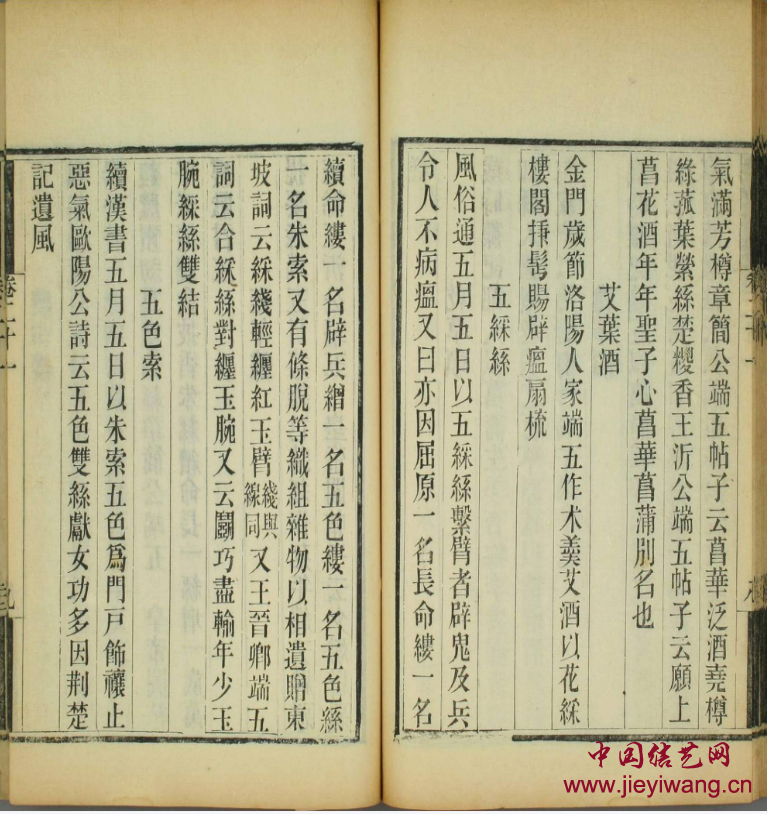 氣滿芳樽章簡公端五帖子云菖華泛酒堯樽
綠菰葉縈絲楚糉香王沂公端五帖子云願上
菖花酒年年聖子心菖華菖蒲別名也
艾葉酒
金門歲節洛陽人家端五作术羹艾酒以花綵
樓閣揷髩賜辟瘟扇梳
五綵絲
風俗通五月五日以五綵絲繫臂者辟鬼及兵
令人不病瘟又曰亦因屈原一名長命縷一名
續命縷一名辟兵繒一名五色縷一名五色絲
一名朱索又有條脫等織組雜物以相遺贈東
坡詞云綵綫輕纏紅玉臂綫與線同又王晉卿端五
詞云合綵絲對纏玉腕又云鬭巧盡輸年少玉
腕綵絲雙結
五色索
續漢書五月五日以朱索五色爲門戸飾禳止
惡氣歐陽公詩云五色雙絲獻女功多因荆楚
記遺風
卷二十一
中国结艺网
www.jieyiwang.cn